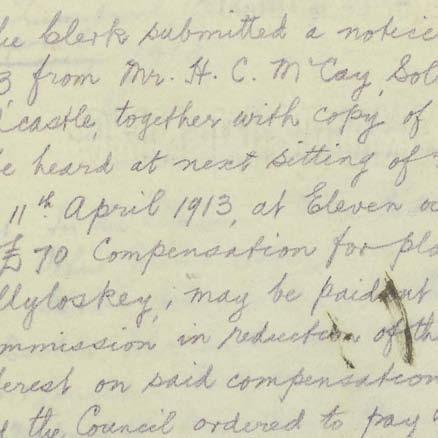 he Clerk submitted a notice
3 from Mr. H. C. McCay, Sol
castle, together with copy of
e heard at next sitting of
11th April 1913, at Eleven o
£70 Compensation for pla
llyloskey, may be paid out
mmission in reduction of th
terest on said compensation
the Council ordered to pay